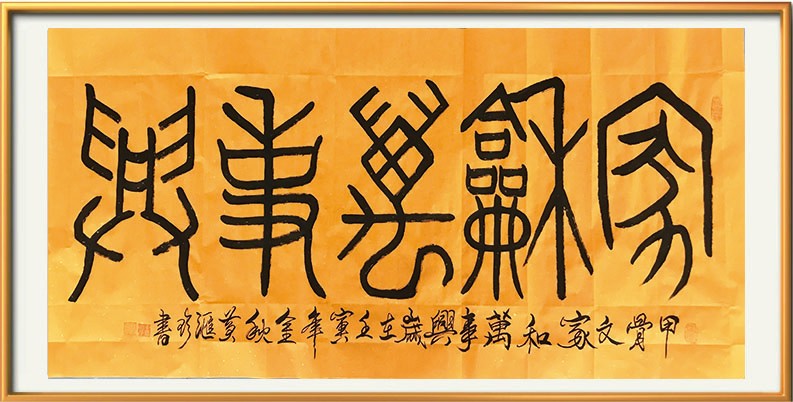 家龢萬事興
甲骨文家和萬事興歲在壬寅年金秋黄滙珍書